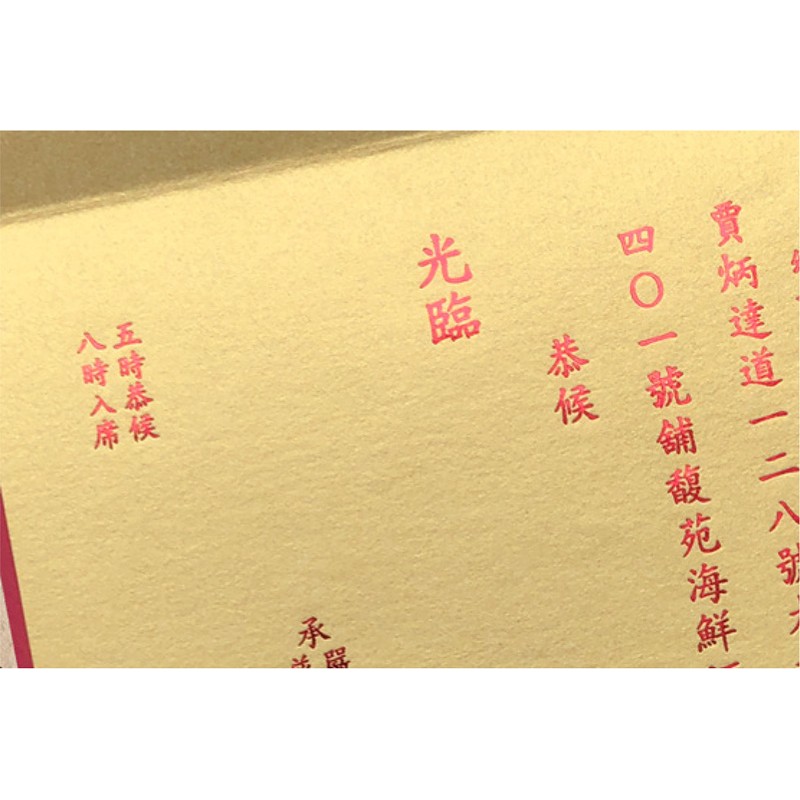 賈炳達道一二八號
四〇一號舖馥苑海鮮
恭候
光臨
承
嚴
五時恭候
八時入席